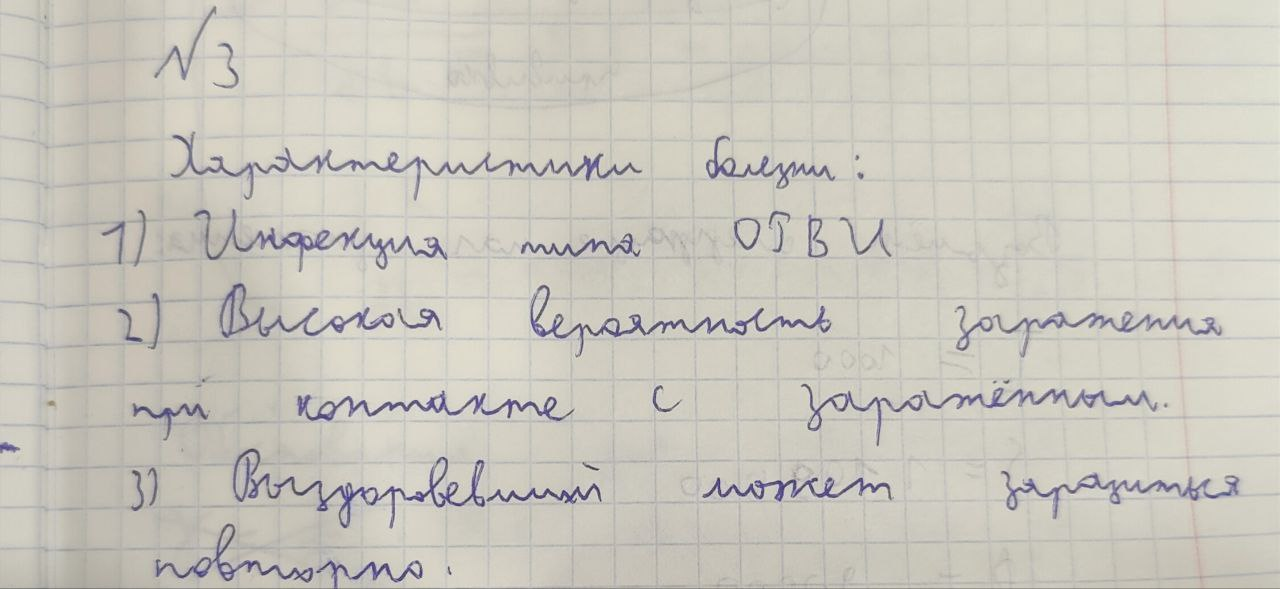 №3
Характеристики болезни:
1) Инфекция типа ОГВИ
2) Высокая вероятность заражения
при контакте с заражённым.
3) Выздоровевший может заразиться
повторно.